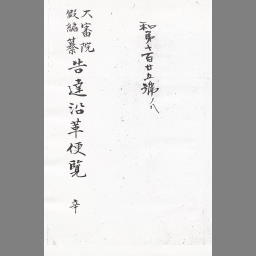 和第十百廿五號ノ八
大審院
假編纂
告達沿革便覧
辛